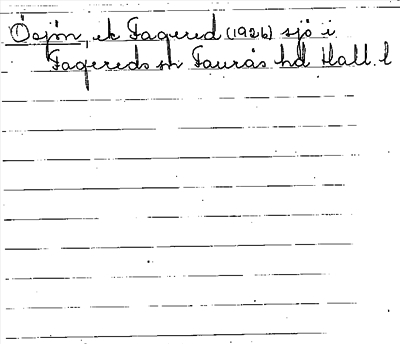 Ösjön, ek Fagered (1926) sjö i
Fagereds sn Faurås hd Hall. l